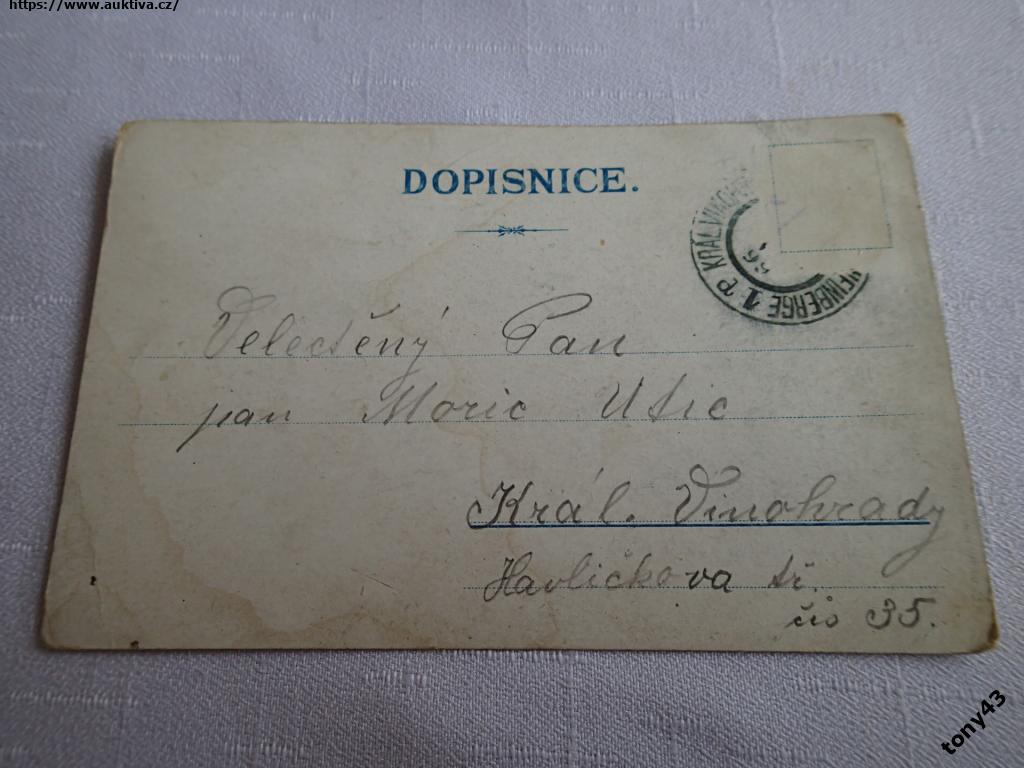 https://www.auktiva.cz/
DOPISNICE.
KRÁL. VINOHR
WEINBERGE 1
Velectěný Pan
pan Moric Utic
Král. Vinohrady
Havlíčkova tř.
čís 35.
tony43